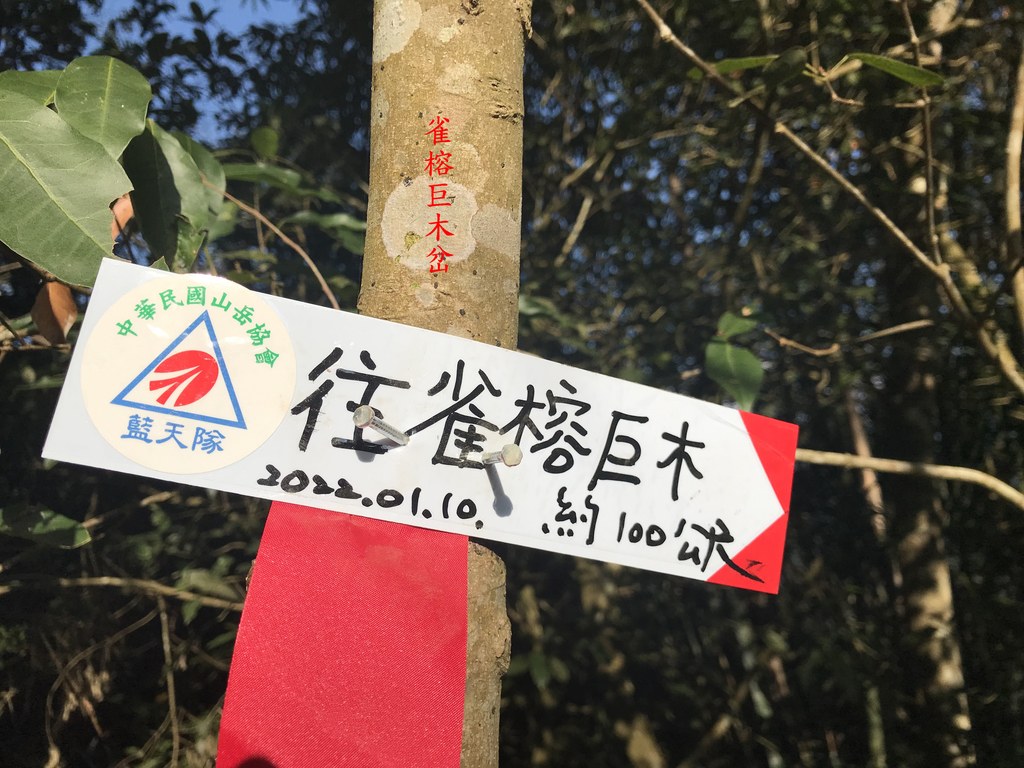 雀榕巨木岔
中華民國山岳協會
藍天隊
往雀榕巨木
2022.01.10. 約100公尺